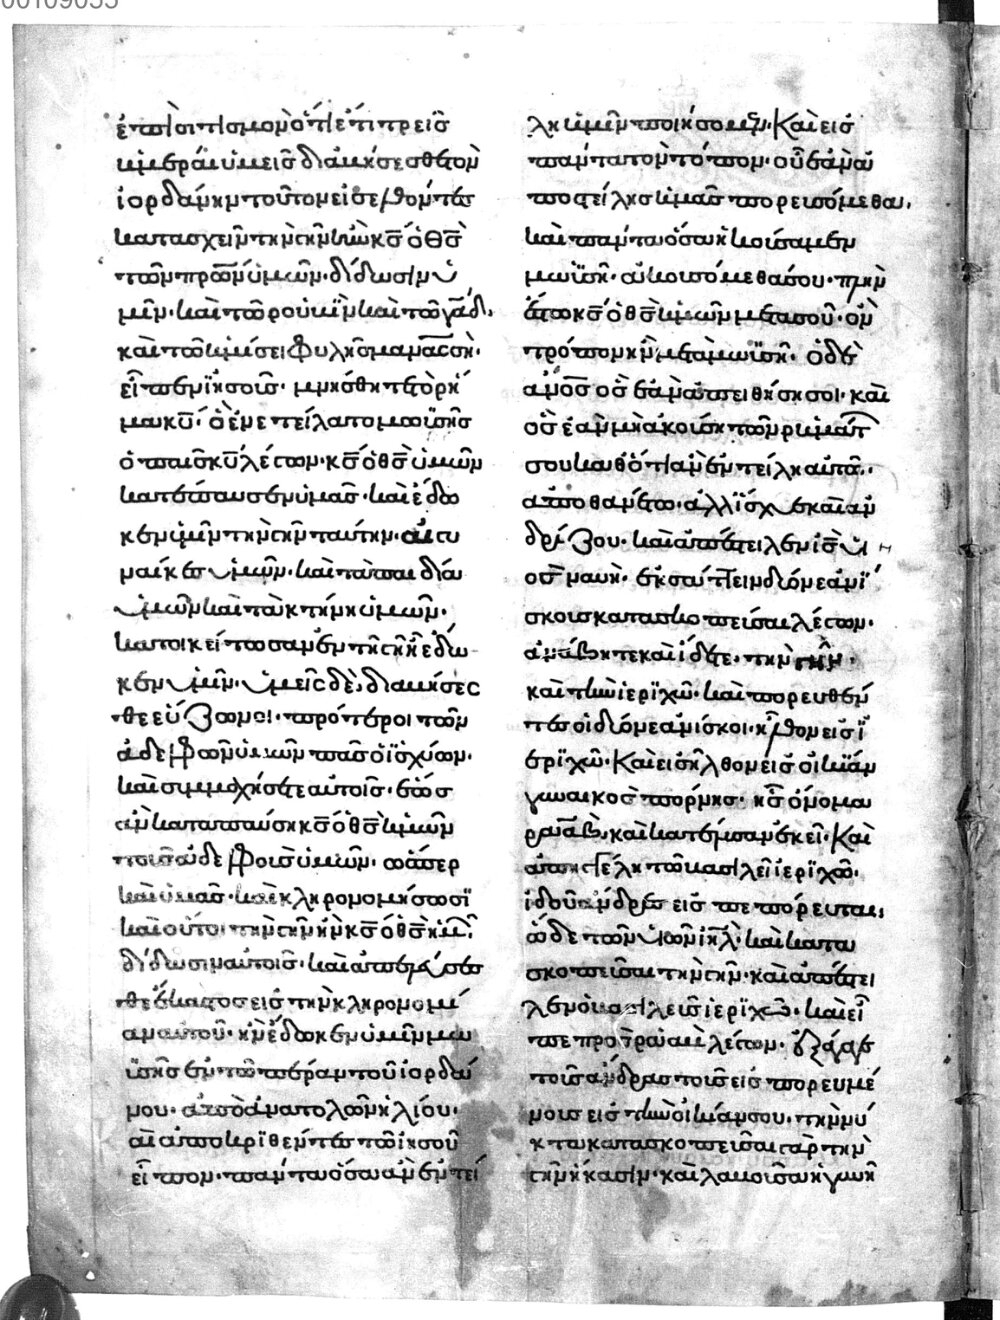 ἐπισιτισμὸν ὅτι ἔτι τρεῖς
ἡμέραι ὑμεῖς διαβήσεσθε τὸν
ἰορδάνην τοῦτον εἰσελθόντες
κατασχεῖν τὴν γῆν ἣν κ̅ς̅ ὁ θ̅ς̅
τῶν πρ̅ω̅ν ὑμῶν δίδωσιν ὑ
μῖν· καὶ τῶ ρουβὶμ καὶ τῶ γὰδ·
καὶ τῶ ἡμίσει φυλῆς μανασσῆ·
εἶπεν ἰησοῦς· μνήσθητε τὸ ρῆ
μα κ̅υ̅· ὃ ἐνετείλατο μωϋσῆς
ὁ παῖς κ̅υ̅ λέγων· κ̅ς̅ ὁ θ̅ς̅ ὑμῶν
κατέπαυσεν ὑμᾶς· καὶ ἔδω
κεν ὑμῖν τὴν γῆν ταύτην· αἱ γυ
ναῖκες ὑμῶν· καὶ τὰ παιδία
ὑμῶν καὶ τὰ κτήνη ὑμῶν·
κατοικείτωσαν ἐν τῆ γῆ ἧ ἔδω
κεν ὑμῖν· ὑμεῖς δὲ, διαβήσεσ
θε εὔζωνοι· πρότεροι τῶν
ἀδελφῶν ὑμῶν πᾶς ὁ ἰσχύων·
καὶ συμμαχήσετε αὐτοῖς· ἕως
ἂν καταπαύση κ̅ς̅ ὁ θ̅ς̅ ἡμῶν
τοῖς ἀδελφοῖς ὑμῶν· ὥσπερ
καὶ ὑμᾶς· καὶ κληρονομήσωσϊ
καὶ οὗτοι τὴν γῆν ἣν κ̅ς̅ ὁ θ̅ς̅ ἡμῶν
δίδωσιν αὐτοῖς· καὶ ἀπελεύσεσ
θε ἕκαστος εἰς τὴν κληρονομί
αν αὐτοῦ· ἣν ἔδωκεν ὑμῖν μω
ϋσῆς ἐν τῶ πέραν τοῦ ἰορδά
νου· ἀπὸ ἀνατολῶν ἡλίου·
καὶ ἀποκριθέντες τῶ ἰησοῦ
εἶπον· πάντα ὅσα ἂν ἐντεί
λη ἡμῖν ποιήσομεν· Καὶ εἰς
πάντα τὸν τόπον· οὗ ἐὰν ἀ
ποστείλης ἡμᾶς πορευσόμεθα·
καὶ πάντα ὅσα ἠκούσαμεν
μωϋσῆ· ἀκουσόμεθα σου· πλὴν
ἔστω κ̅ς̅ ὁ θ̅ς̅ ἡμῶν μετὰ σοῦ· ὃν
τρόπον ἦν μετὰ μωϋσῆ· ὁ δὲ
α̅ν̅ο̅ς̅ ὃς ἐὰν ἀπειθήση σοι· καὶ
ὃς ἐὰν μὴ ἀκούση τῶν ρημάτ
σου καθότι ἂν ἐντείλη αὐτῶ·
ἀποθανέτω· ἀλλ' ἴσχυε καὶ ἀν
δρίζου· καὶ ἀπέστειλεν ἰς̅ υἱ
ὸς ναυῆ· ἐκ σαττεὶν δύο νεανί
σκους κατασκοπεῦσαι λέγων·
ἀνάβητε καὶ ἴδετε· τὴν γῆν·
καὶ τὴν ἱερϊχῶ· καὶ πορευθέν
τες οἱ δύο νεανίσκοι· ἦλθον εἰς ἱ
ερϊχῶ· Καὶ εἰσῆλθον εἰς οἰκίαν
γυναικὸς πόρνης· ἧς ὄνομα
ραὰβ· καὶ κατέλυσαν ἐκεῖ· Καὶ
ἀπηγγέλη τῶ βασιλεῖ ἱερϊχῶ·
ἰδοὺ ἄνδρες εἰσπεπόρευται
ὧδε τῶν υἱῶν ἰη̅λ̅· καὶ κατα
σκοπεῦσαι τὴν γῆν· καὶ ἀπέστει
λεν ὁ βασιλεὺς ἱερϊχῶ· καὶ εἶ
πε προς ραὰβ λέγων· ἐξάγαγε
τοὺς ἄνδρας τοὺς εἰσπορευμέ
νους εἰς τὴν οἰκίαν σου· τὴν νύ
κτα κατασκοπεῦσαι γὰρ τὴν
γῆν ἥκασιν· καὶ λαβοῦσα ἡ γυνὴ